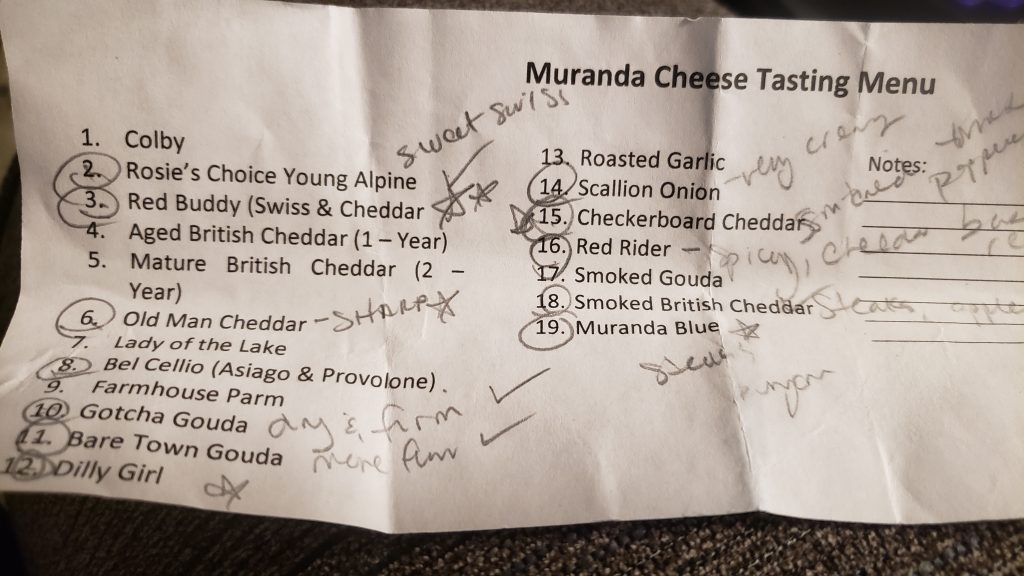 Muranda Cheese Tasting Menu
sweet swiss
1. Colby
2. Rosie's Choice Young Alpine
3. Red Buddy (Swiss & Cheddar
4. Aged British Cheddar (1 – Year)
5. Mature British Cheddar (2 –
Year)
6. Old Man Cheddar - SHARP
7. Lady of the Lake
8. Bel Cellio (Asiago & Provolone) .
9. Farmhouse Parm
10. Gotcha Gouda dry & firm
11. Bare Town Gouda more firm
12. Dilly Girl
13. Roasted Garlic
14. Scallion Onion - very creamy
15. Checkerboard Cheddar
16. Red Rider - spicy, cheddar
17. Smoked Gouda
18. Smoked British Cheddar Steaks, apple
19. Muranda Blue
Notes: